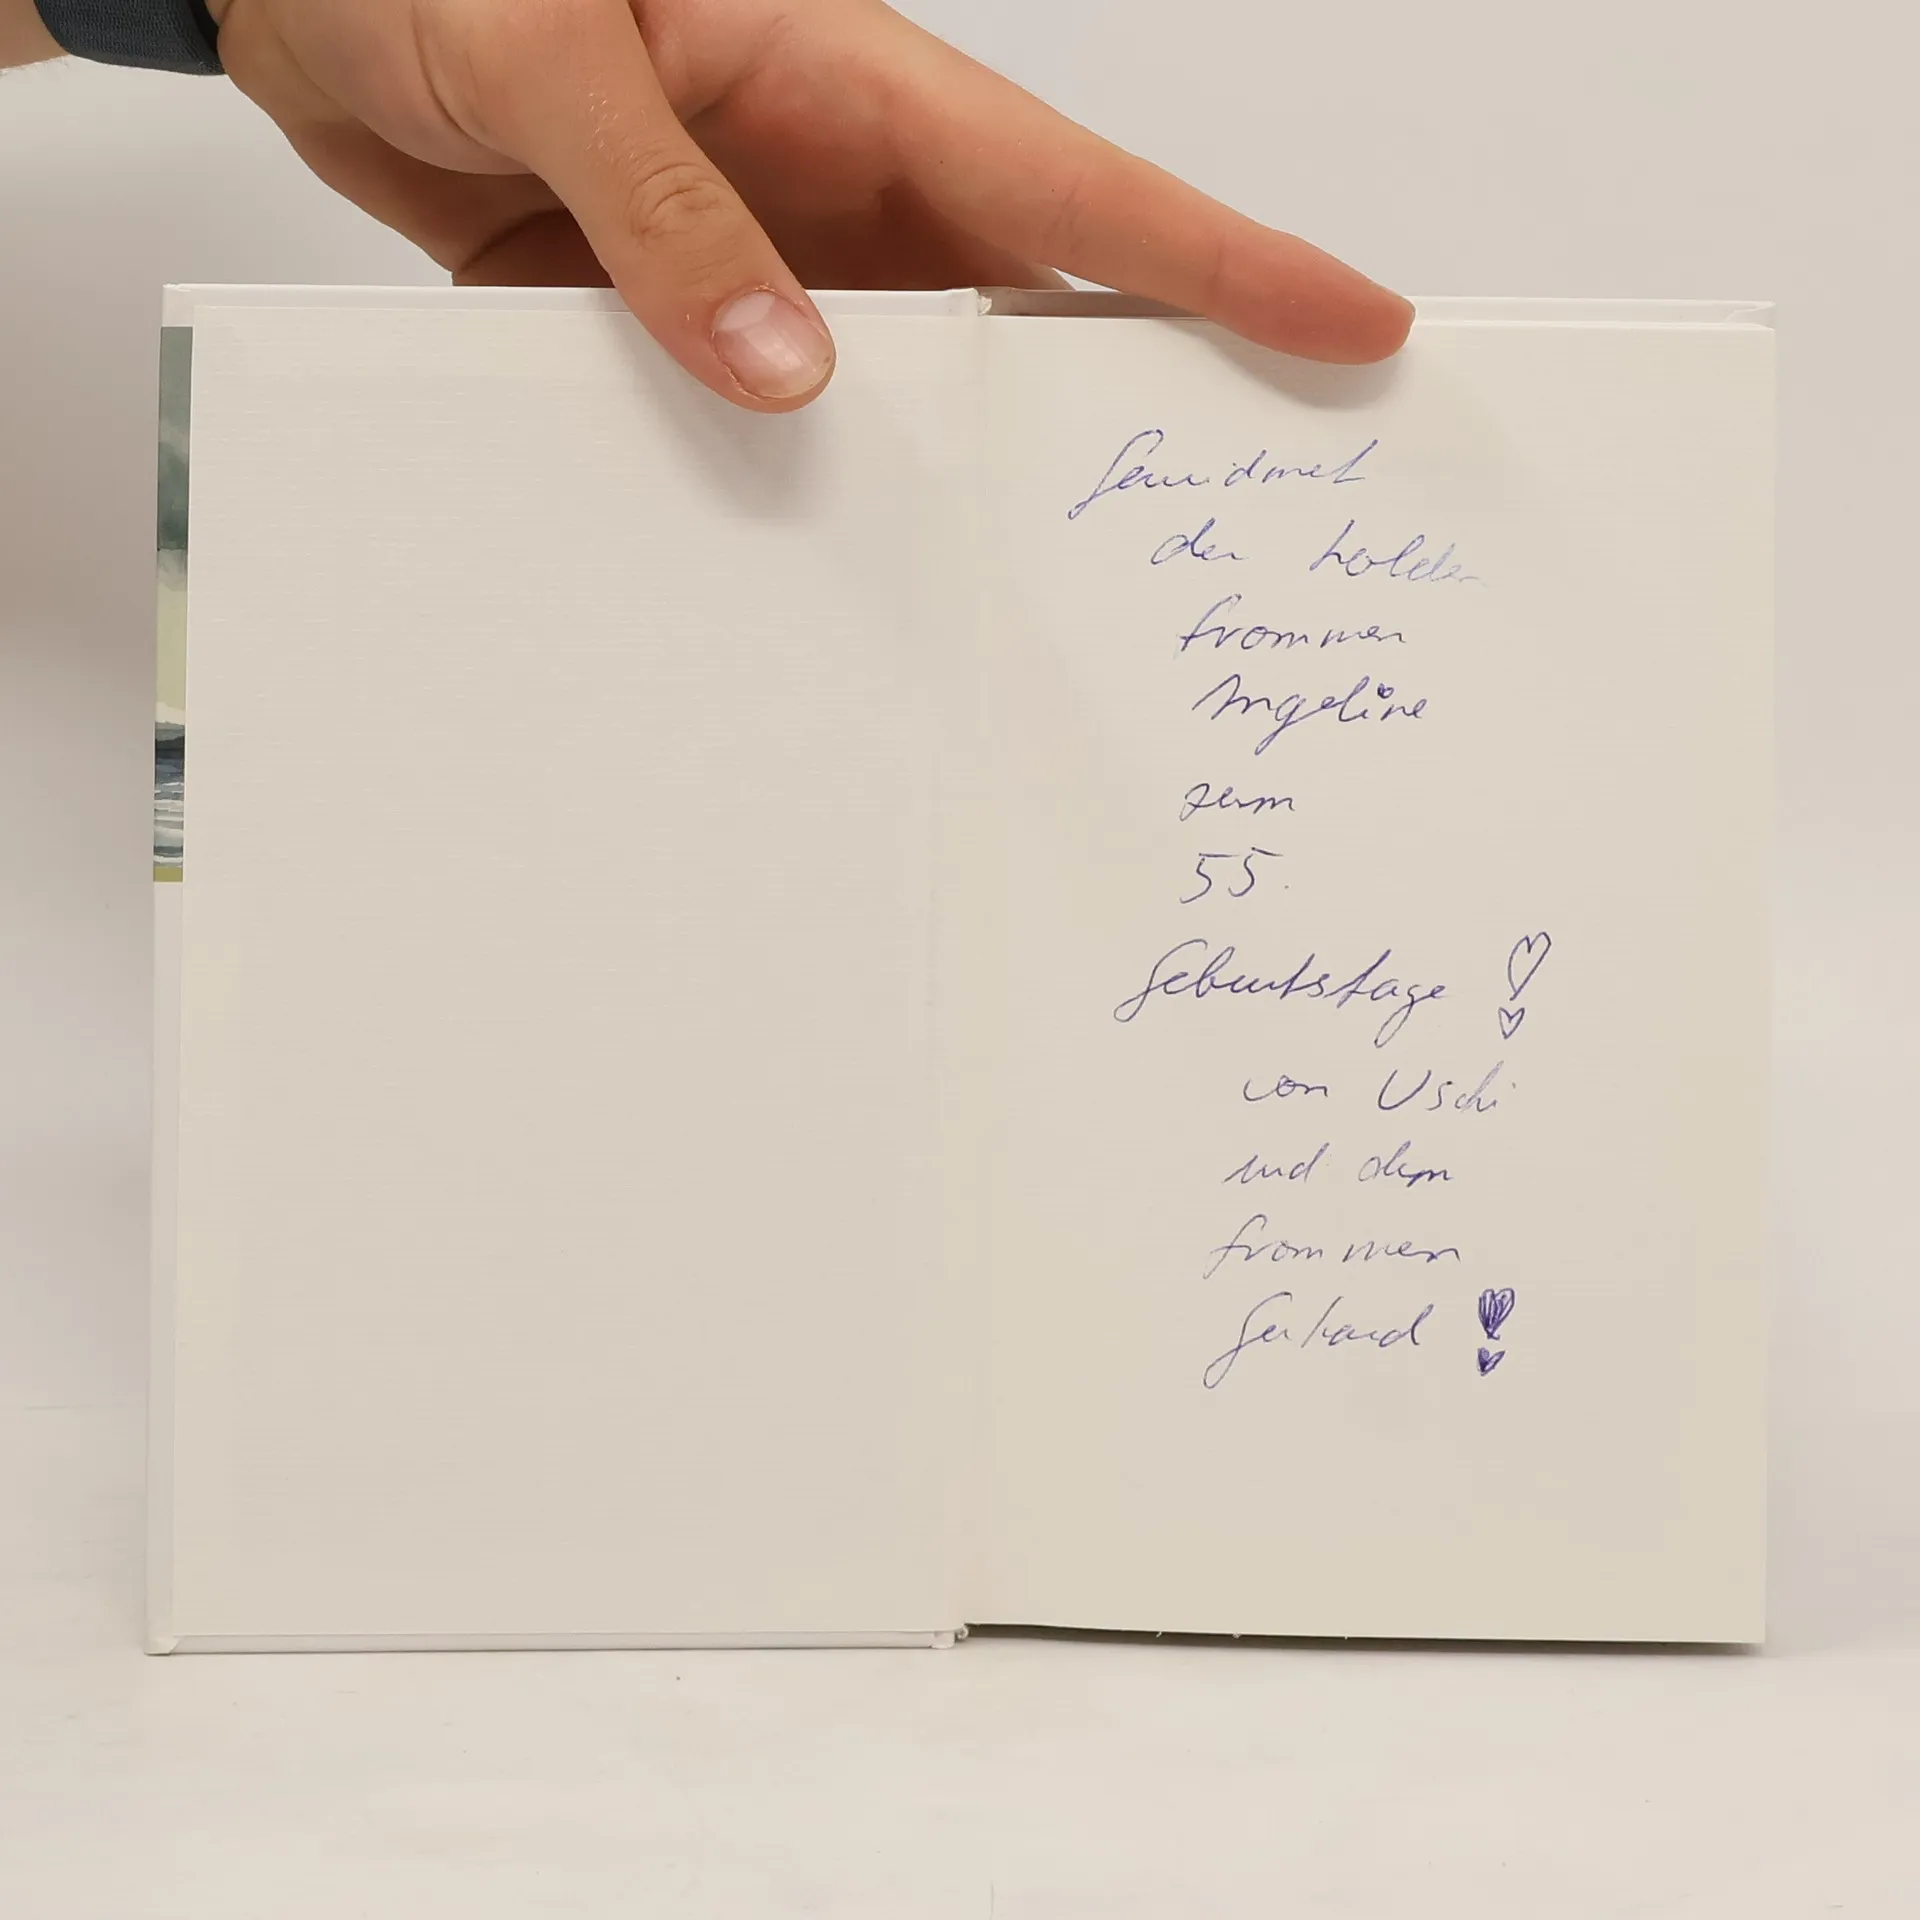 Gewidmet
der holden
frommen
Angeline
zum
55.
Geburtstage
von Uschi
und dem
frommen
Gerhard